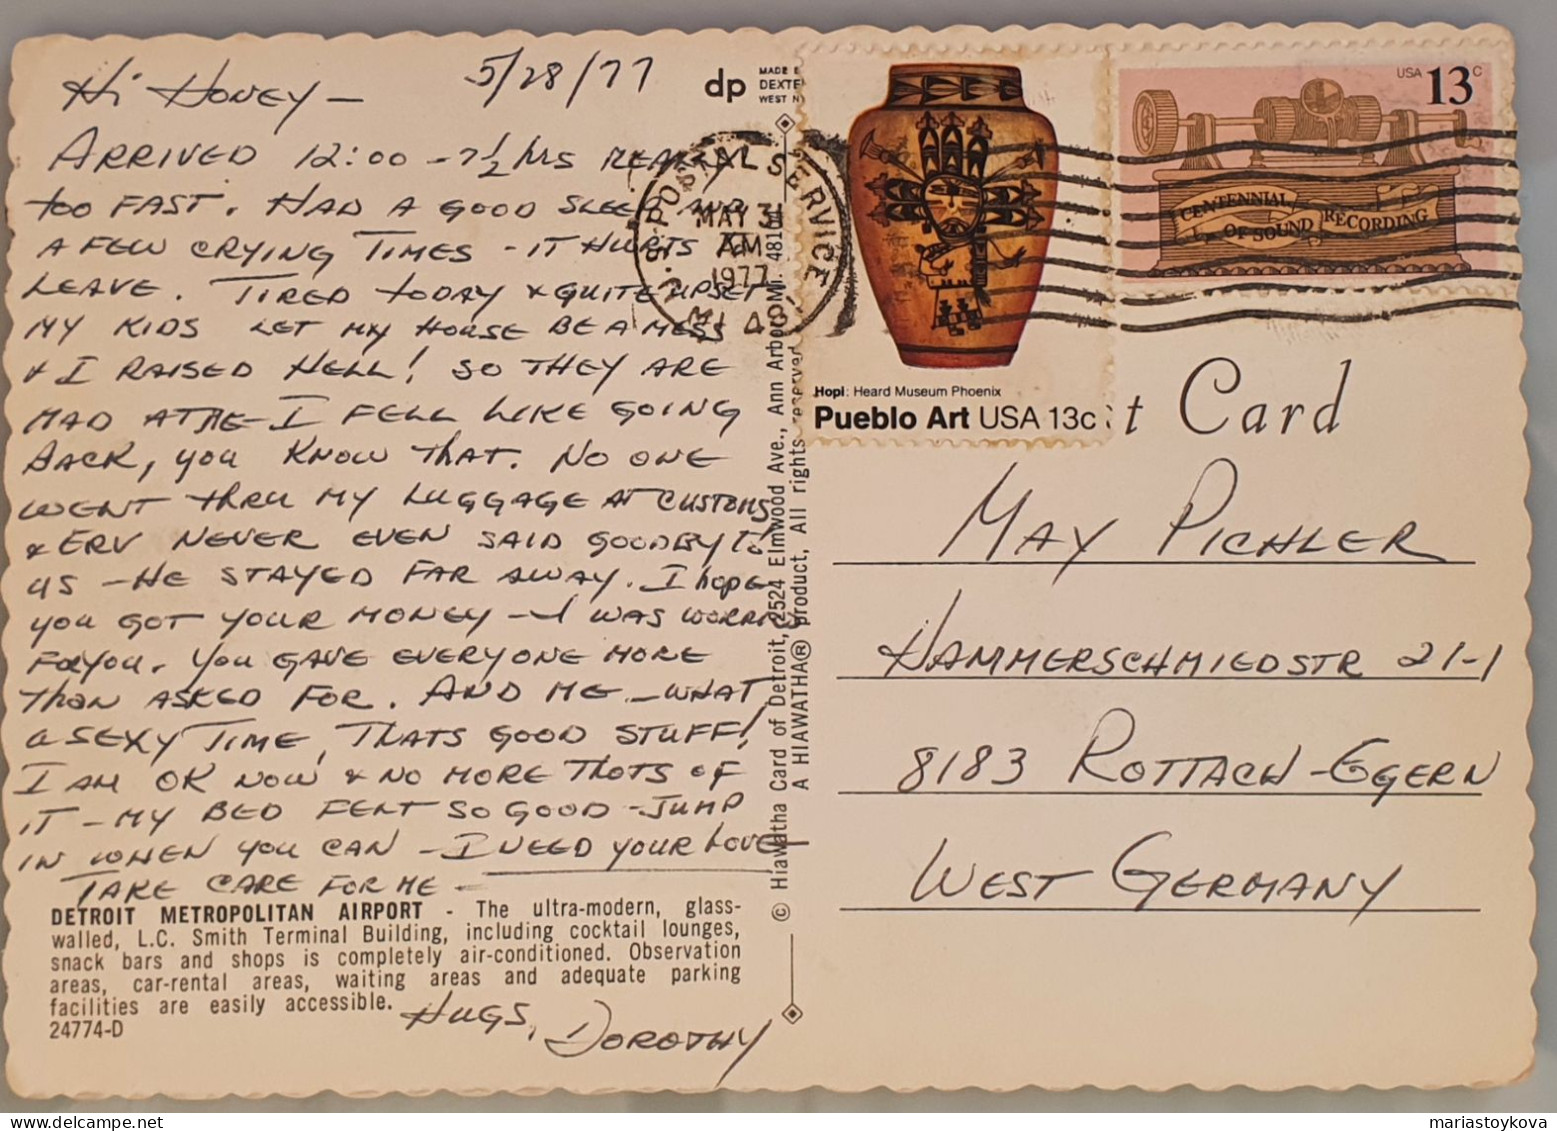 Hi Honey – 5/28/77
ARRIVED 12:00 – 7½ hrs REALLY
too FAST. HAD A GOOD SLEEP AND
A FEW CRYING TIMES – IT HURTS TO
LEAVE. TIRED today & QUITE UPSET
MY KIDS LET MY HOUSE BE A MESS
& I RAISED HELL! SO THEY ARE
MAD AT ME – I FELL LIKE GOING
BACK, you KNOW that. NO ONE
WENT thru MY LUGGAGE AT CUSTOMS
& ERV NEVER EVEN SAID GOODBY TO
US – HE STAYED FAR AWAY. I hope
you GOT YOUR MONEY – I WAS WORRYG
FOR YOU. YOU GAVE EVERYONE MORE
than ASKED FOR. AND ME – WHAT
a SEXY TIME, THATS GOOD STUFF!
I AM OK NOW & NO MORE THOTS OF
IT – MY BED FELT SO GOOD – JUMP
IN WHEN YOU CAN – I NEED YOUR LOVE –
TAKE CARE FOR ME –
DETROIT METROPOLITAN AIRPORT - The ultra-modern, glass-
walled, L.C. Smith Terminal Building, including cocktail lounges,
snack bars and shops is completely air-conditioned. Observation
areas, car-rental areas, waiting areas and adequate parking
facilities are easily accessible.
24774-D
HUGS,
DOROTHY
dp
MADE B
DEXTE
WEST N
© Hiawatha Card of Detroit, 2524 Elmwood Ave., Ann Arbor, Mi. 48104
A HIAWATHA® product, All rights reserved
U.S. POSTAL SERVICE
MAY 31
AM
1977
MI 48
Hopi: Heard Museum Phoenix
Pueblo Art USA 13c
USA 13c
CENTENNIAL
OF SOUND RECORDING
t Card
MAY PICHLER
HAMMERSCHMIEDSTR 21-1
8183 ROTTACH-EGERN
WEST GERMANY
mariastoykova